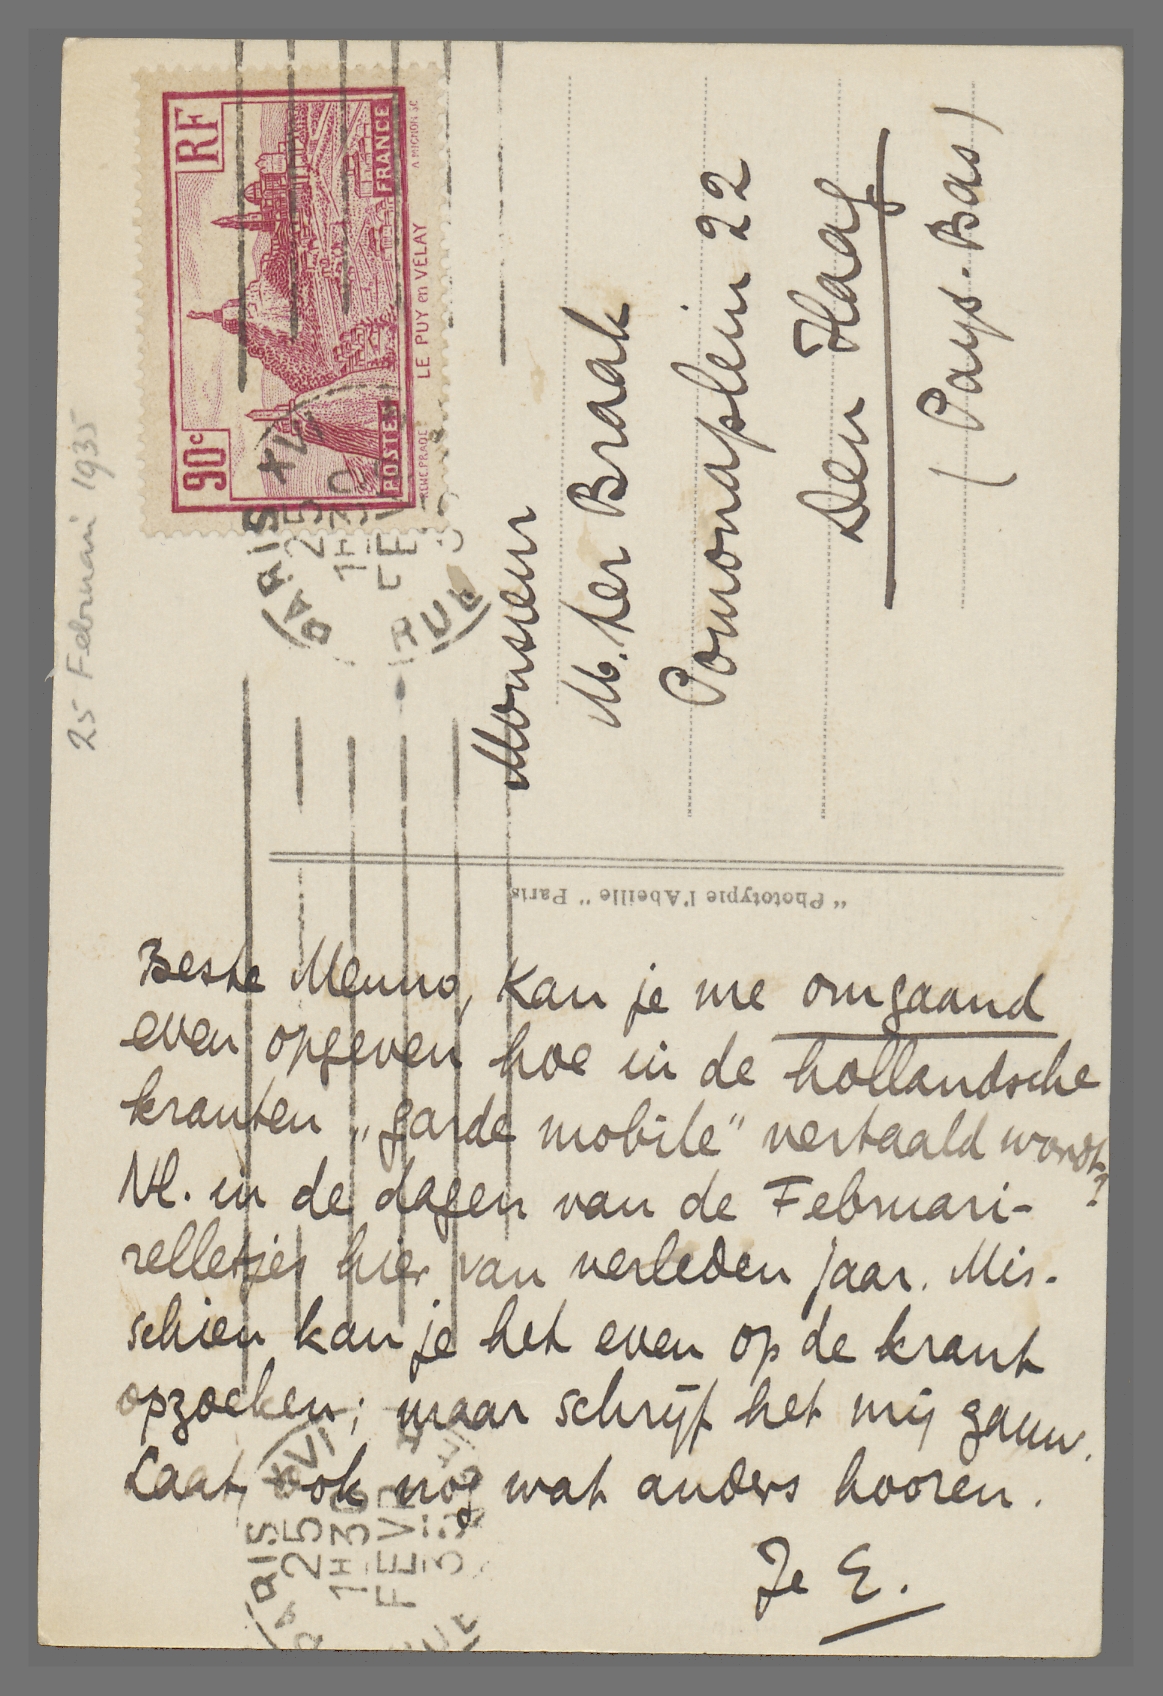 25 Februari 1935
RF
90c
POSTES
FRANCE
LE PUY en VELAY
PARIS XVI
25
1H30
FEVR
RUE
Monsieur
M. ter Braak
Pomonaplein 22
Den Haag
(Pays-Bas)
"Phototypie l'Abeille" Paris
Beste Menno, kan je me omgaand
even opgeven hoe in de hollandsche
kranten „garde mobile" vertaald wordt?
Nl. in de dagen van de Februari-
relletjes hier van verleden jaar. Mis-
schien kan je het even op de krant
opzoeken; maar schrijf het mij gauw.
Laat ook nog wat anders hooren.
Je E.
PARIS XVI
25
1H30
FEVR
RUE